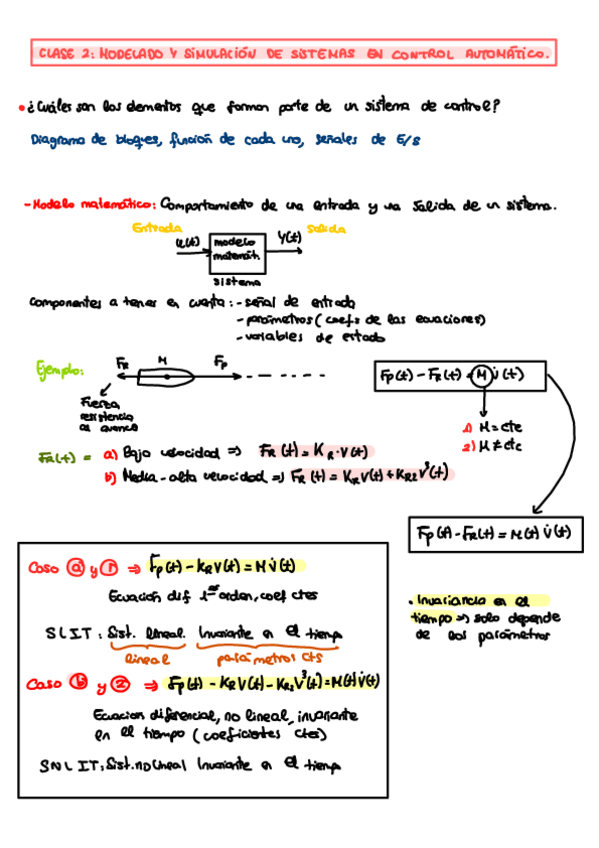 CLASE 2: MODELADO Y SIMULACIÓN DE SISTEMAS EN CONTROL AUTOMÁTICO.
• ¿Cuáles son los elementos que forman parte de un sistema de control?
Diagrama de bloques, función de cada uno, señales de E/S
- Modelo matemático: Comportamiento de una entrada y una salida de un sistema.
Entrada
Salida
u(t)
modelo
matemát
Y(t)
sistema
Componentes a tener en cuenta: - señal de entrada
- parámetros (coefs de las ecuaciones)
- variables de estado
Ejemplo:
FR
M
FP
Fuerza
resistencia
al avance
Fp(t) - FR(t) = M v̇(t)
1) M = cte
2) M ≠ cte
FR(t) = a) Baja velocidad => FR(t) = KR·V(t)
b) Media-alta velocidad => FR(t) = KRV(t) + KR2V³(t)
Fp(t) - FR(t) = M(t) V̇(t)
Caso a y 1 => Fp(t) - KRV(t) = M V̇(t)
Ecuación dif 1er orden, coef ctes
SLIT: Sist. lineal Invariante en el tiemp
lineal
parámetros cts
Caso b y 2 => Fp(t) - KRV(t) - KR2V³(t) = M(t) V̇(t)
Ecuación diferencial, no lineal, invariante
en el tiempo (coeficientes ctes)
SNLIT: Sist. no lineal Invariante en el tiemp
• Invariancia en el
tiempo => solo depende
de los parámetros